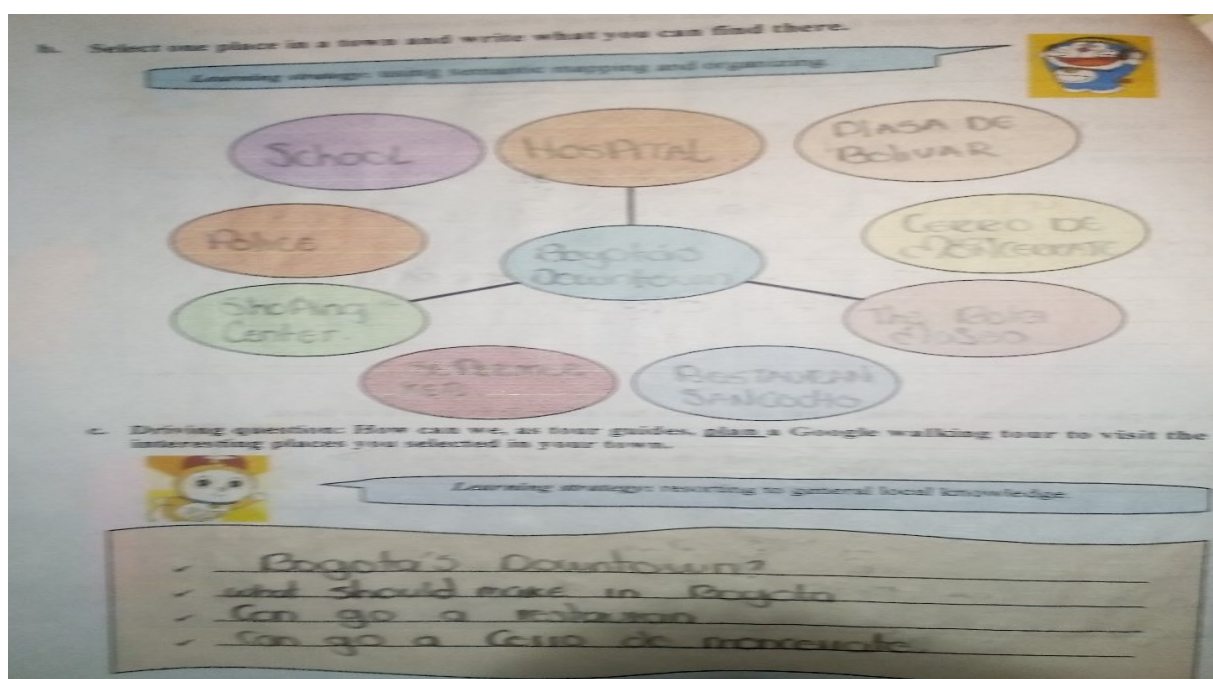 b. Select one place in a town and write what you can find there.
Learning strategy: using semantic mapping and organizing
School
HOSPITAL
PlASA DE
BoliVAR
Police
Bogotás
Downtown
CERRO DE
Shoping
Center
The
RESTAURAN
SANCOCHO
c. Driving question: How can we, as tour guides, plan a Google walking tour to visit the
interesting places you selected in your town.
Learning strategy: resorting to general local knowledge
✓ Bogota's Downtown?
✓ what should make in Bogota
✓ Can go a restauran
✓ Can go a Cerro de monserrate